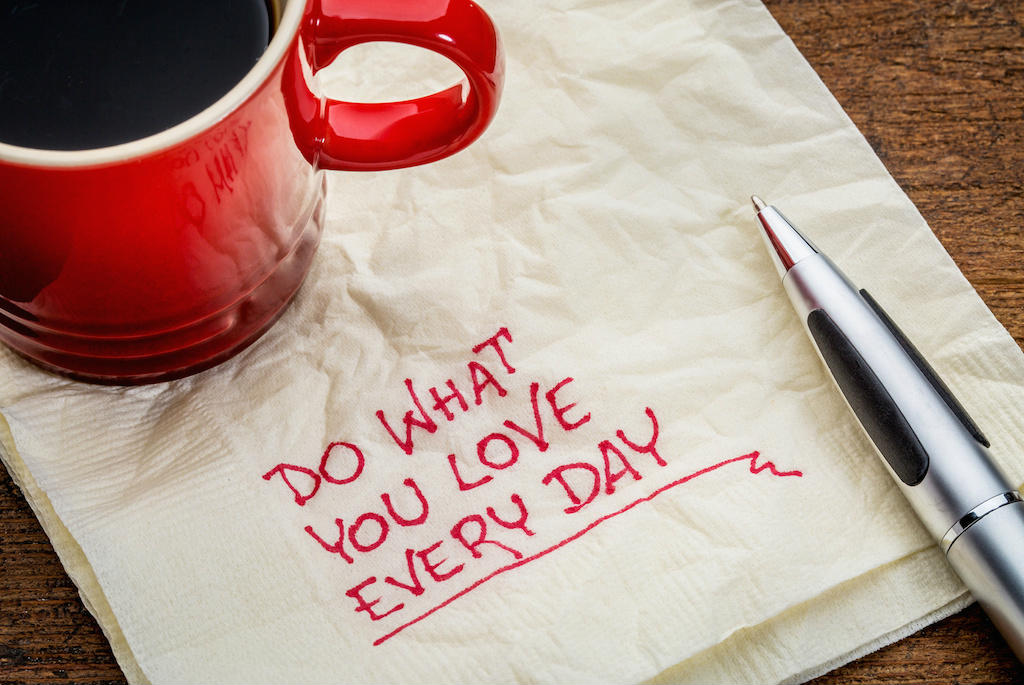 DO WHAT
YOU LOVE
EVERY DAY